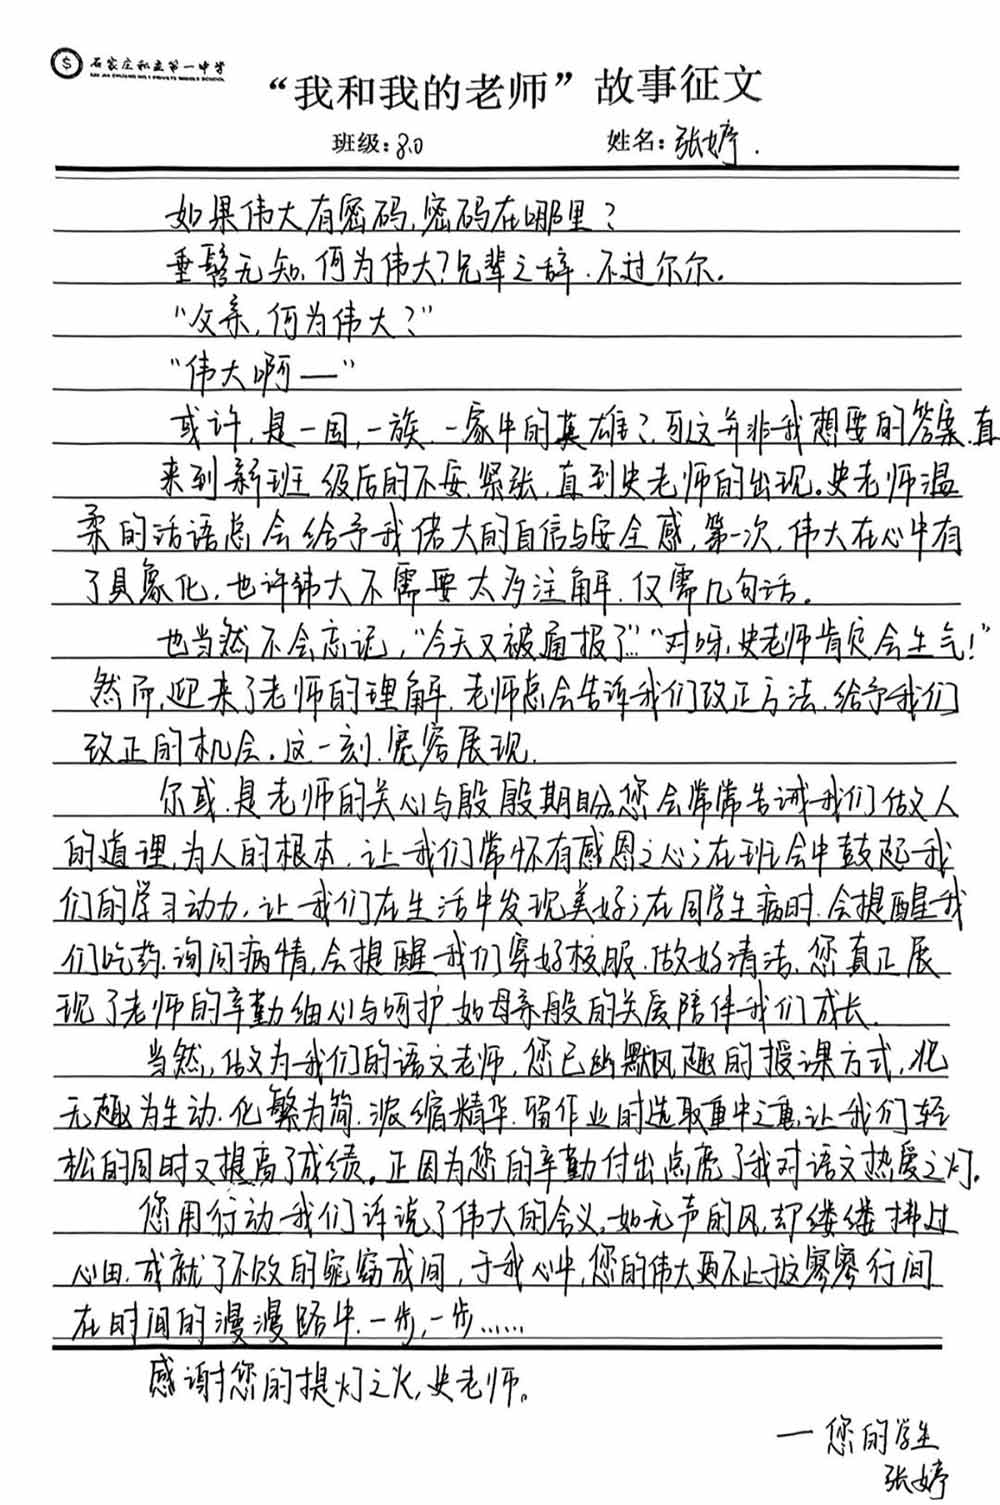 石家庄私立第一中学
“我和我的老师”故事征文
班级:80 姓名:张婷.
如果伟大有密码,密码在哪里?
垂髫无知,何为伟大?兄辈之辞,不过尔尔。
“父亲,何为伟大?”
“伟大啊——”
或许,是一国,一族,一家中的英雄?可这并非我想要的答案,直
来到新班级后的不安,紧张,直到史老师的出现。史老师温
柔的话语总会给予我偌大的自信与安全感,第一次,伟大在心中有
了具象化,也许伟大不需要太多注解,仅需几句话。
也当然不会忘记,“今天又被通报了”…“对呀,史老师肯定会生气!”
然而,迎来了老师的理解,老师总会告诉我们改正方法,给予我们
改正的机会。这一刻,宽容展现.
尔或,是老师的关心与殷殷期盼。您会常常告诫我们做人
的道理,为人的根本,让我们常怀有感恩之心;在班会中鼓起我
们的学习动力,让我们在生活中发现美好;在同学生病时,会提醒我
们吃药,询问病情,会提醒我们穿好校服,做好清洁,您真正展
现了老师的辛勤细心与呵护,如母亲般的关爱陪伴我们成长.
当然,做为我们的语文老师,您已幽默风趣的授课方式,化
无趣为生动,化繁为简,浓缩精华,留作业时选取重中之重,让我们轻
松的同时又提高了成绩。正因为您的辛勤付出点亮了我对语文热爱之灯.
您用行动我们诉说了伟大的含义。如无声的风,却缕缕拂过
心田,成就了不败的窈窕成间,于我心中,您的伟大更不止于这寥寥行间
在时间的漫漫路中,一步,一步……
感谢您的提灯之火,史老师。
—您的学生
张婷